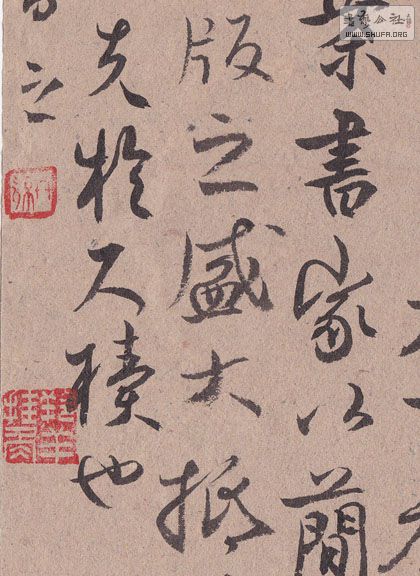 書家以簡
版之盛大抵
先於尺牘也
之
公社
WWW.SHUFA.ORG